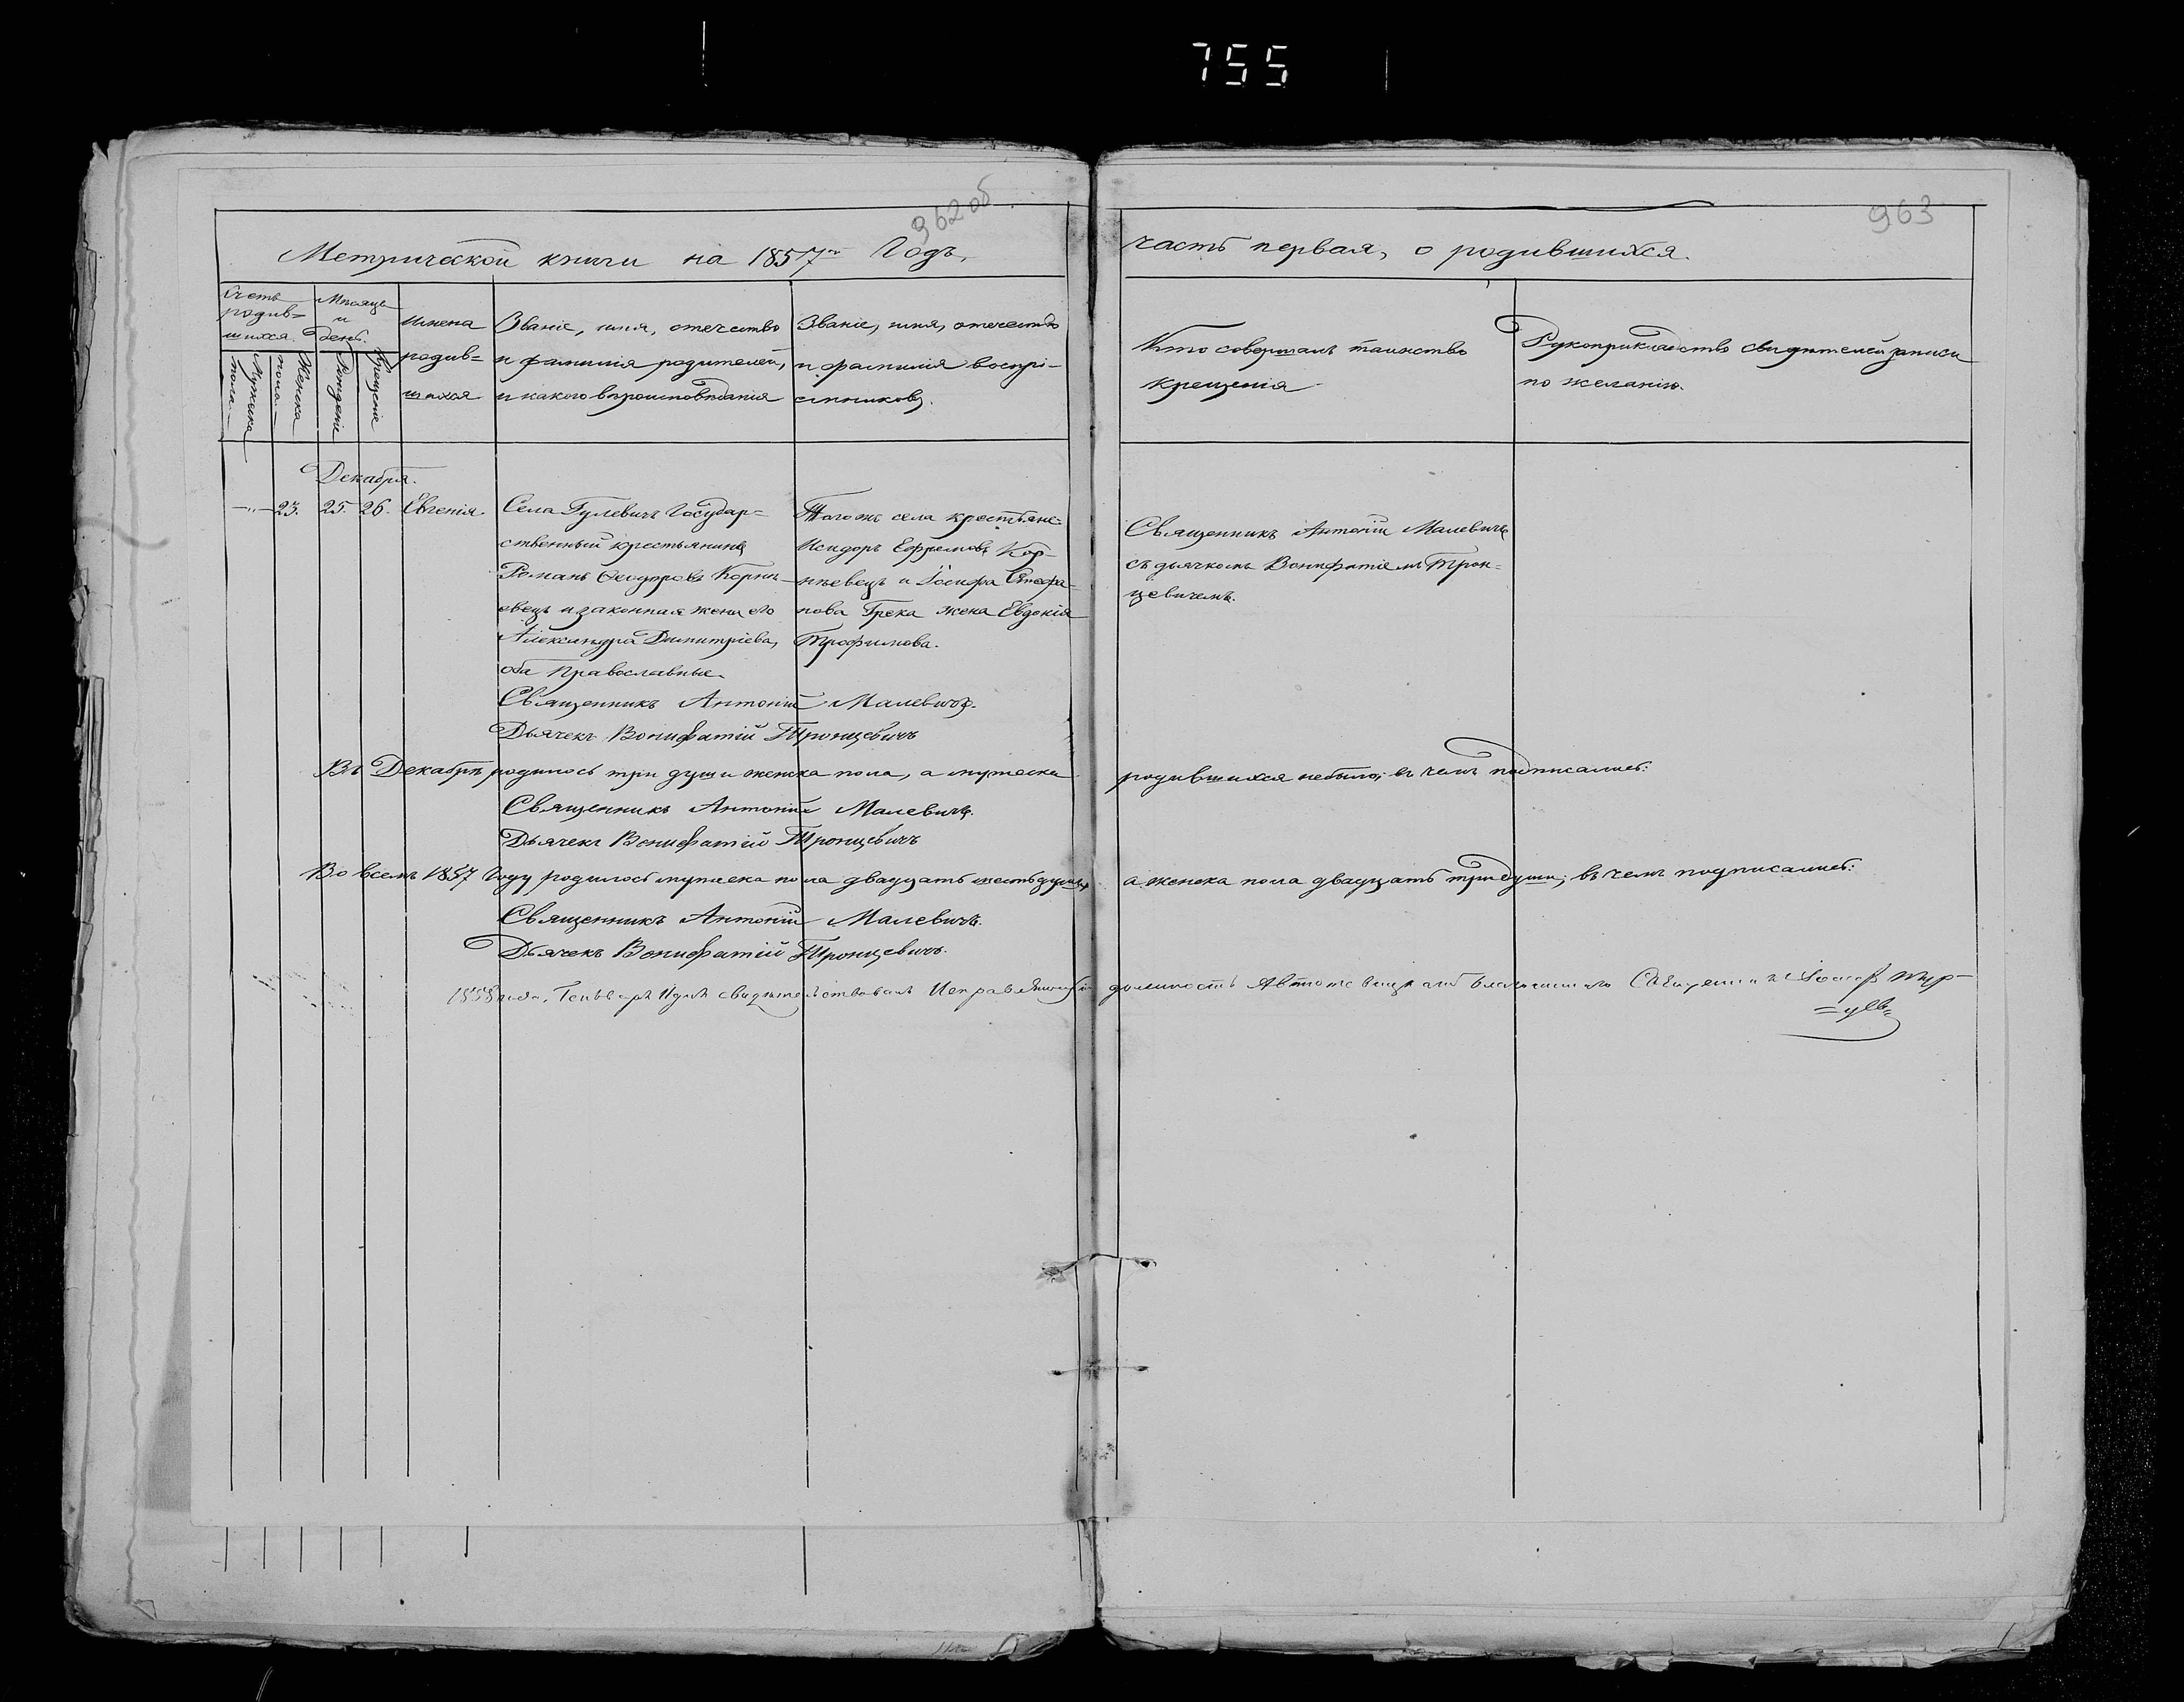 755
962 об
963
Метрической книги на 1857й Годъ,
часть первая, о родившихся.
Счетъ родив=шихся.
Мужеска пола.
Женска пола.
Мѣсяцъ и день.
Рожденіе
Крещеніе
Имена родив=шихся
Званіе, имя, отчество
и фамилія родителей,
и какого вѣроисповѣданія
Званіе, имя, отчество
и фамилія воспрі-
емниковъ.
Кто совершалъ таинство
крещенія
Рукоприкладство свидѣтелей записи
по желанію.
Декабря.
—„— 23. 25. 26. Евгенія.
Села Гулевичъ Государ=
ственный крестьянинъ
Романъ Ѳеодоровъ Корнѣ-
евецъ и законная жена его
Александра Димитріева,
оба Православные.
Тогожъ села крестьяне:
Исидоръ Ефремовъ Кор-
нѣевецъ и Іосифа Стефа-
нова Грека жена Евдокія
Трофимова.
Священникъ Антоній Малевичъ
съ дьячкомъ Вонифатіемъ Трон-
цевичемъ.
Священникъ Антоній Малевичъ.
Дьячекъ Вонифатій Тронцевичъ
Въ Декабрѣ родилось три души женска пола, а мужеска родившихся небыло; въ чемъ подписались:
Священникъ Антоній Малевичъ.
Дьячекъ Вонифатій Тронцевичъ
Во всемъ 1857 Году родилось мужеска пола двадцать шесть душъ, а женска пола двадцать три души; въ чемъ подписались:
Священникъ Антоній Малевичъ.
Дьячекъ Вонифатій Тронцевичъ.
1858 года, свидѣтельствовалъ Исправляющій должность Благочиннаго Священникъ Іосифъ